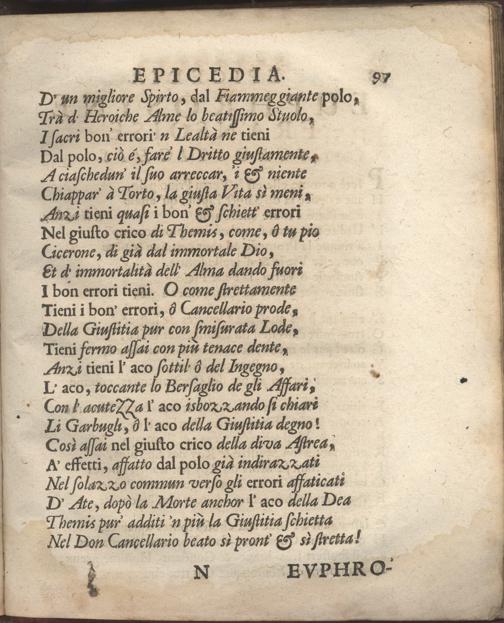 EPICEDIA. 97
D' un migliore Spirto, dal Fiammeggiante polo,
Trà d' Heroiche Alme lo beatissimo Stuolo,
I sacri bon' errori 'n Lealtà ne tieni
Dal polo, ciò é, fare' l Dritto giustamente,
A ciaschedun' il suo arreccar, 'i & niente
Chiappar' à Torto, la giusta Vita sì meni,
Anzi tieni quasi i bon' & schiett' errori
Nel giusto crico di Themis, come, ô tu pio
Cicerone, di già dal immortale Dio,
Et d' immortalità dell' Alma dando fuori
I bon errori tieni. O come strettamente
Tieni i bon' errori, ô Cancellario prode,
Della Giustitia pur con smisurata Lode,
Tieni fermo assai con più tenace dente,
Anzi tieni l' aco sottil' ô del Ingegno,
L' aco, toccante lo Bersaglio de gli Affari,
Con l' acutezza l' aco isbozzando si chiari
Li Garbugli, ô l' aco della Giustitia degno!
Così assai nel giusto crico della diva Astrea,
A' effetti, affatto dal polo già indirazzati
Nel solazzo commun verso gli errori affaticati
D' Ate, dopò la Morte anchor l' aco della Dea
Themis pur' additi 'n più la Giustitia schietta
Nel Don Cancellario beato sì pront' & sì stretta!
N EVPHRO-